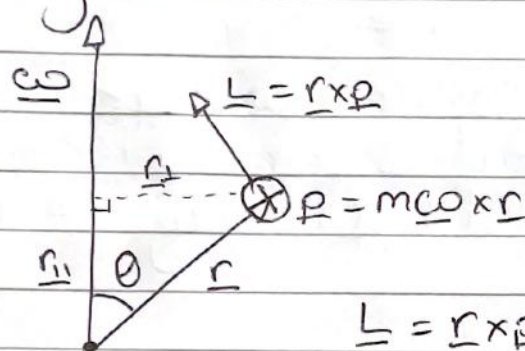 ω
L = r×p
r⊥
p = mω×r
r∥ θ r
L = r×p